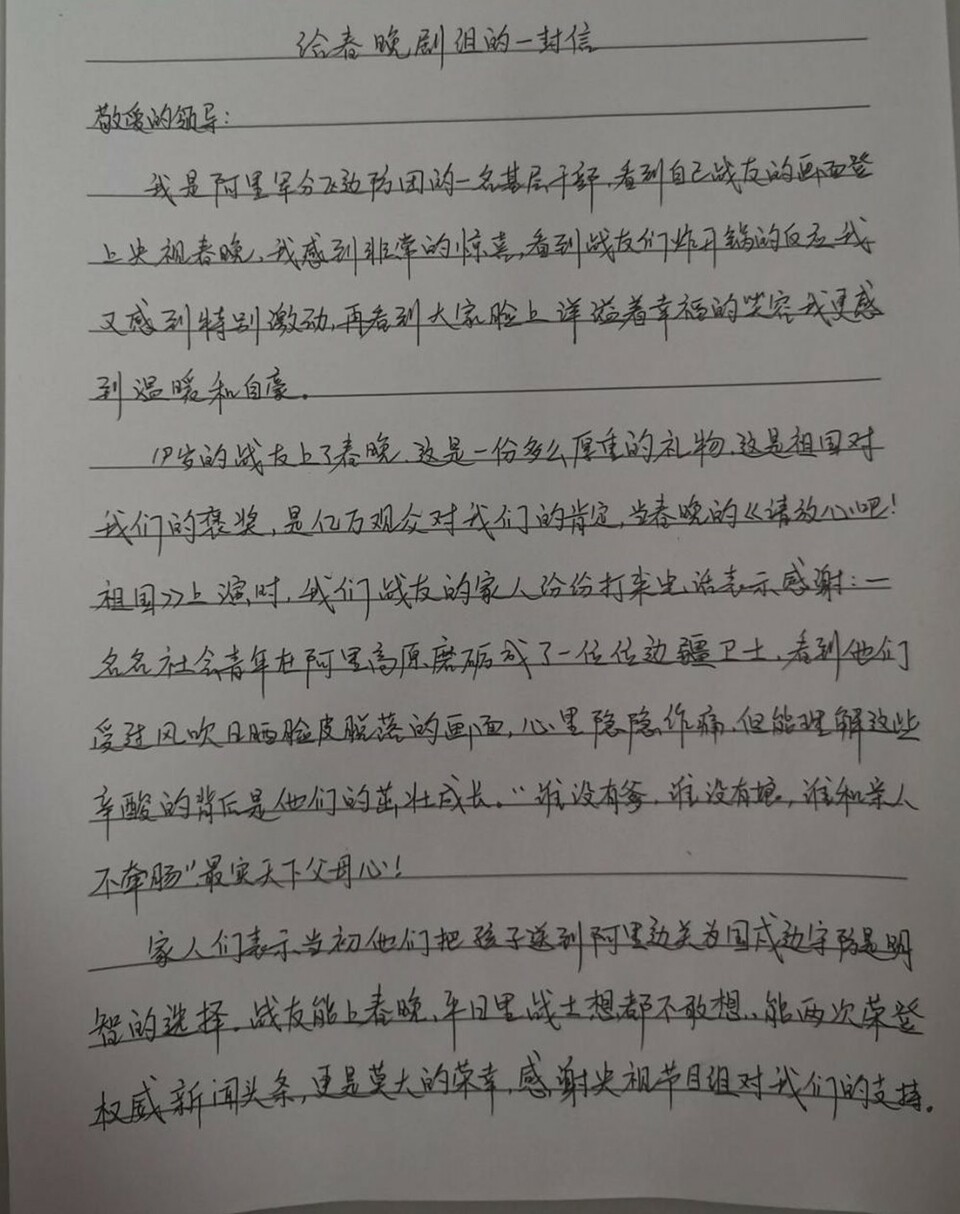 给春晚剧组的一封信
敬爱的领导：
我是阿里军分区边防团的一名基层干部，看到自己战友的画面登
上央视春晚，我感到非常的惊喜，看到战友们炸开锅的反应我
又感到特别激动，再看到大家脸上洋溢着幸福的笑容我更感
到温暖和自豪。
19岁的战友上了春晚，这是一份多么厚重的礼物，这是祖国对
我们的褒奖，是亿万观众对我们的肯定，当春晚的《请放心吧！
祖国》上演时，我们战友的家人纷纷打来电话表示感谢：一
名名社会青年在阿里高原磨砺成了一位位边疆卫士，看到他们
受过风吹日晒脸皮脱落的画面，心里隐隐作痛，但能理解这些
辛酸的背后是他们的茁壮成长。“谁没有爹，谁没有娘，谁和亲人
不牵肠”最实天下父母心！
家人们表示当初他们把孩子送到阿里边关为国戍边守防是明
智的选择。战友能上春晚，平日里战士想都不敢想，能两次荣登
权威新闻头条，更是莫大的荣幸，感谢央视节目组对我们的支持。